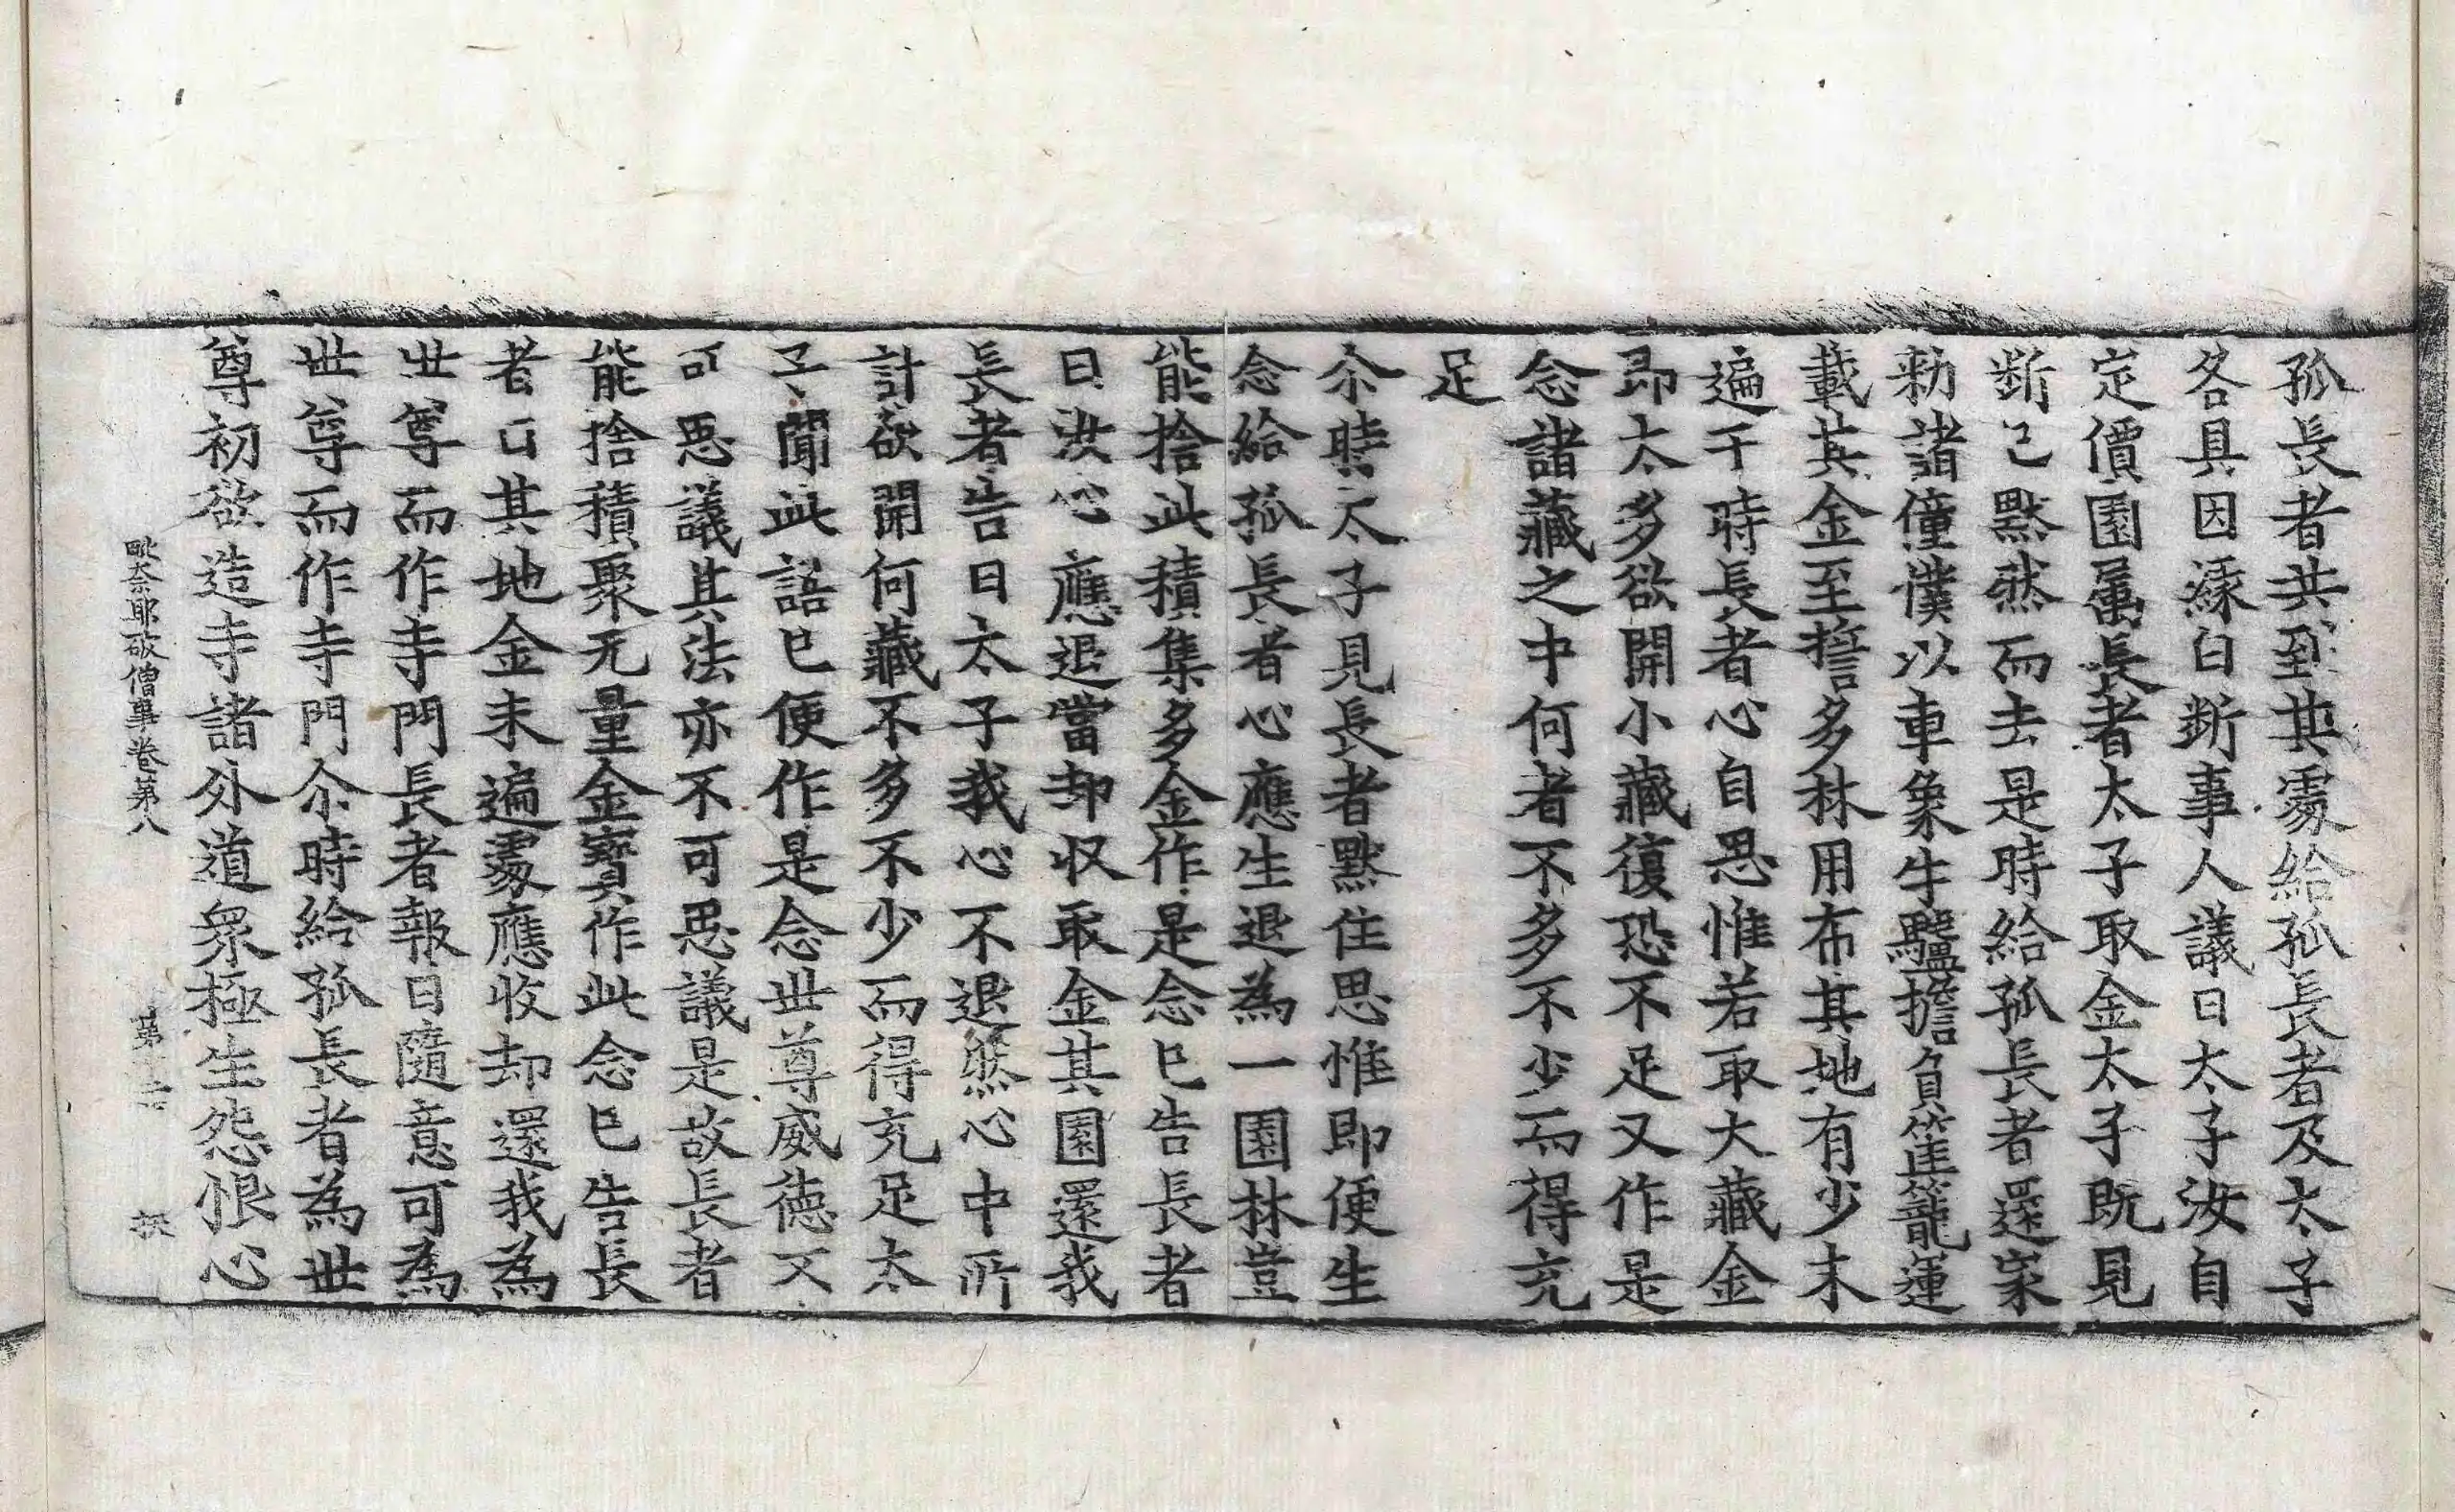 孤長者共到其處給孤長者及太子
各具因緣白斷事人議曰太子汝自
定價園屬長者太子取金太子既見
斷已默然而去是時給孤長者還家
勑諸僮僕以車象牛驢擔負筐籠運
載其金至誓多林用布其地有少未
遍于時長者心自思惟若取大藏金
即太多欲開小藏復恐不足又作是
念諸藏之中何者不多不少而得充
足
尒時太子見長者默住思惟即便生
念給孤長者心應生退為一園林豈
能捨此積集多金作是念已告長者
曰汝心應退當却收取金其園還我
長者告曰太子我心不退然心中所
計欲開何藏不多不少而得充足太
子聞此語已便作是念世尊威德不
可思議其法亦不可思議是故長者
能捨積聚无量金寶作此念已告長
者曰其地金未遍處應收却還我為
世尊而作寺門長者報曰隨意可為
世尊而作寺門尒時給孤長者為世
尊初欲造寺諸外道眾極生怨恨心
毗奈耶破僧事卷第八 第